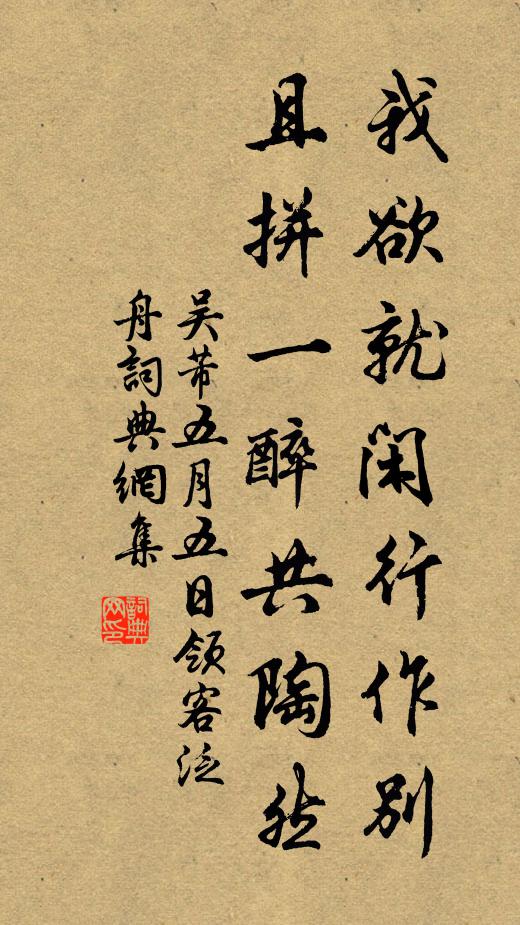 我欲就閑行作别
且拼一醉共陶然
吴芾五月五日領客泛
舟詞典網集
詞典
网印